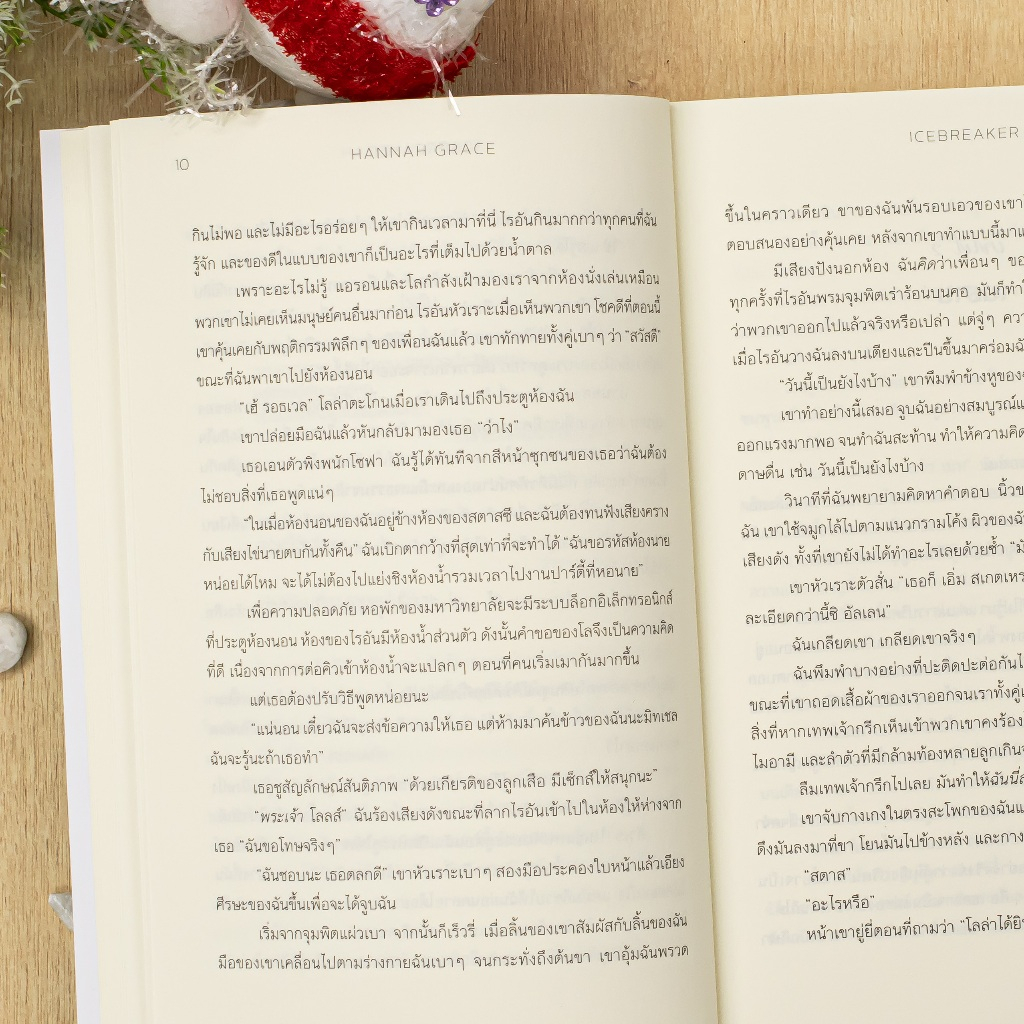 10
HANNAH GRACE
กินไม่พอ และไม่มีอะไรอร่อยๆ ให้เขากินเวลามาที่นี่ ไรอันกินมากกว่าทุกคนที่ฉัน
รู้จัก และของดีในแบบของเขาก็เป็นอะไรที่เต็มไปด้วยน้ำตาล
เพราะอะไรไม่รู้ แอรอนและโลกำลังเฝ้ามองเราจากห้องนั่งเล่นเหมือน
พวกเขาไม่เคยเห็นมนุษย์คนอื่นมาก่อน ไรอันหัวเราะเมื่อเห็นพวกเขา โชคดีที่ตอนนี้
เขาคุ้นเคยกับพฤติกรรมพิลึกๆ ของเพื่อนฉันแล้ว เขาทักทายทั้งคู่เบาๆ ว่า “สวัสดี”
ขณะที่ฉันพาเขาไปยังห้องนอน
“เฮ้ รอธเวล” โลล่าตะโกนเมื่อเราเดินไปถึงประตูห้องฉัน
เขาปล่อยมือฉันแล้วหันกลับมามองเธอ “ว่าไง”
เธอเอนตัวพิงพนักโซฟา ฉันรู้ได้ทันทีจากสีหน้าซุกซนของเธอว่าฉันต้อง
ไม่ชอบสิ่งที่เธอพูดแน่ๆ
“ในเมื่อห้องนอนของฉันอยู่ข้างห้องของสตาสซี และฉันต้องทนฟังเสียงคราง
กับเสียงไข่นายตบกันทั้งคืน” ฉันเบิกตากว้างที่สุดเท่าที่จะทำได้ “ฉันขอรหัสห้องนาย
หน่อยได้ไหม จะได้ไม่ต้องไปแย่งชิงห้องน้ำรวมเวลาไปงานปาร์ตี้ที่หอนาย”
เพื่อความปลอดภัย หอพักของมหาวิทยาลัยจะมีระบบล็อกอิเล็กทรอนิกส์
ที่ประตูห้องนอน ห้องของไรอันมีห้องน้ำส่วนตัว ดังนั้นคำขอของโลจึงเป็นความคิด
ที่ดี เนื่องจากการต่อคิวเข้าห้องน้ำจะแปลกๆ ตอนที่คนเริ่มเมากันมากขึ้น
แต่เธอต้องปรับวิธีพูดหน่อยนะ
“แน่นอน เดี๋ยวฉันจะส่งข้อความให้เธอ แต่ห้ามมาค้นข้าวของฉันนะมิทเชล
ฉันจะรู้นะถ้าเธอทำ”
เธอชูสัญลักษณ์สันติภาพ “ด้วยเกียรติของลูกเสือ มีเซ็กส์ให้สนุกนะ”
“พระเจ้า โลลส์” ฉันร้องเสียงดังขณะที่ลากไรอันเข้าไปในห้องให้ห่างจาก
เธอ “ฉันขอโทษจริงๆ”
“ฉันชอบนะ เธอตลกดี” เขาหัวเราะเบาๆ สองมือประคองใบหน้าแล้วเอียง
ศีรษะของฉันขึ้นเพื่อจะได้จูบฉัน
เริ่มจากจุมพิตแผ่วเบา จากนั้นก็เร็วรี่ เมื่อลิ้นของเขาสัมผัสกับลิ้นของฉัน
มือของเขาเคลื่อนไปตามร่างกายฉันเบาๆ จนกระทั่งถึงต้นขา เขาอุ้มฉันพรวด
ICEBREAKER
ขึ้นในคราวเดียว ขาของฉันพันรอบเอวของเขา
ตอบสนองอย่างคุ้นเคย หลังจากเขาทำแบบนี้มา
มีเสียงปังนอกห้อง ฉันคิดว่าเพื่อนๆ
ทุกครั้งที่ไรอันพรมจุมพิตเร่าร้อนบนคอ มันก็
ว่าพวกเขาออกไปแล้วจริงหรือเปล่า แต่จู่ๆ
เมื่อไรอันวางฉันลงบนเตียงและปีนขึ้นมาคร่อม
“วันนี้เป็นยังไงบ้าง” เขาพึมพำข้างหูของ
เขาทำอย่างนี้เสมอ จูบฉันอย่างสมบูรณ์
ออกแรงมากพอ จนทำฉันสะท้าน ทำให้ความคิด
ดาษดื่น เช่น วันนี้เป็นยังไงบ้าง
วินาทีที่ฉันพยายามคิดหาคำตอบ นิ้ว
ฉัน เขาใช้จมูกไล้ไปตามแนวกรามโค้ง ผิวของ
เสียงดัง ทั้งที่เขายังไม่ได้ทำอะไรเลยด้วยซ้ำ
เขาหัวเราะตัวสั่น “เธอก็ เอิ่ม สเกต
ละเอียดกว่านี้ซิ อัลเลน”
ฉันเกลียดเขา เกลียดเขาจริงๆ
ฉันพึมพำบางอย่างที่ปะติดปะต่อกัน
ขณะที่เขาถอดเสื้อผ้าของเราออกจนเราทั้งคู่
สิ่งที่หากเทพเจ้ากรีกเห็นเข้าพวกเขาคงร้อง
ไมอามี และลำตัวที่มีกล้ามท้องหลายลูกเกิน
ลืมเทพเจ้ากรีกไปเลย มันทำให้ฉันนี่
เขาจับกางเกงในตรงสะโพกของฉัน
ดึงมันลงมาที่ขา โยนมันไปข้างหลัง และกาง
“สตาส”
“อะไรหรือ”
หน้าเขายู่ยี่ตอนที่ถามว่า “โลล่าได้